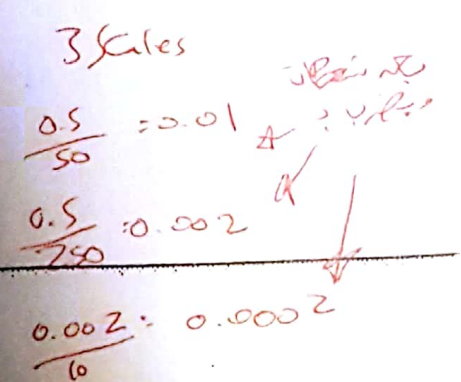 3 Scales
0.5/50 = 0.01
0.5/250 = 0.002
0.002/10 = 0.0002